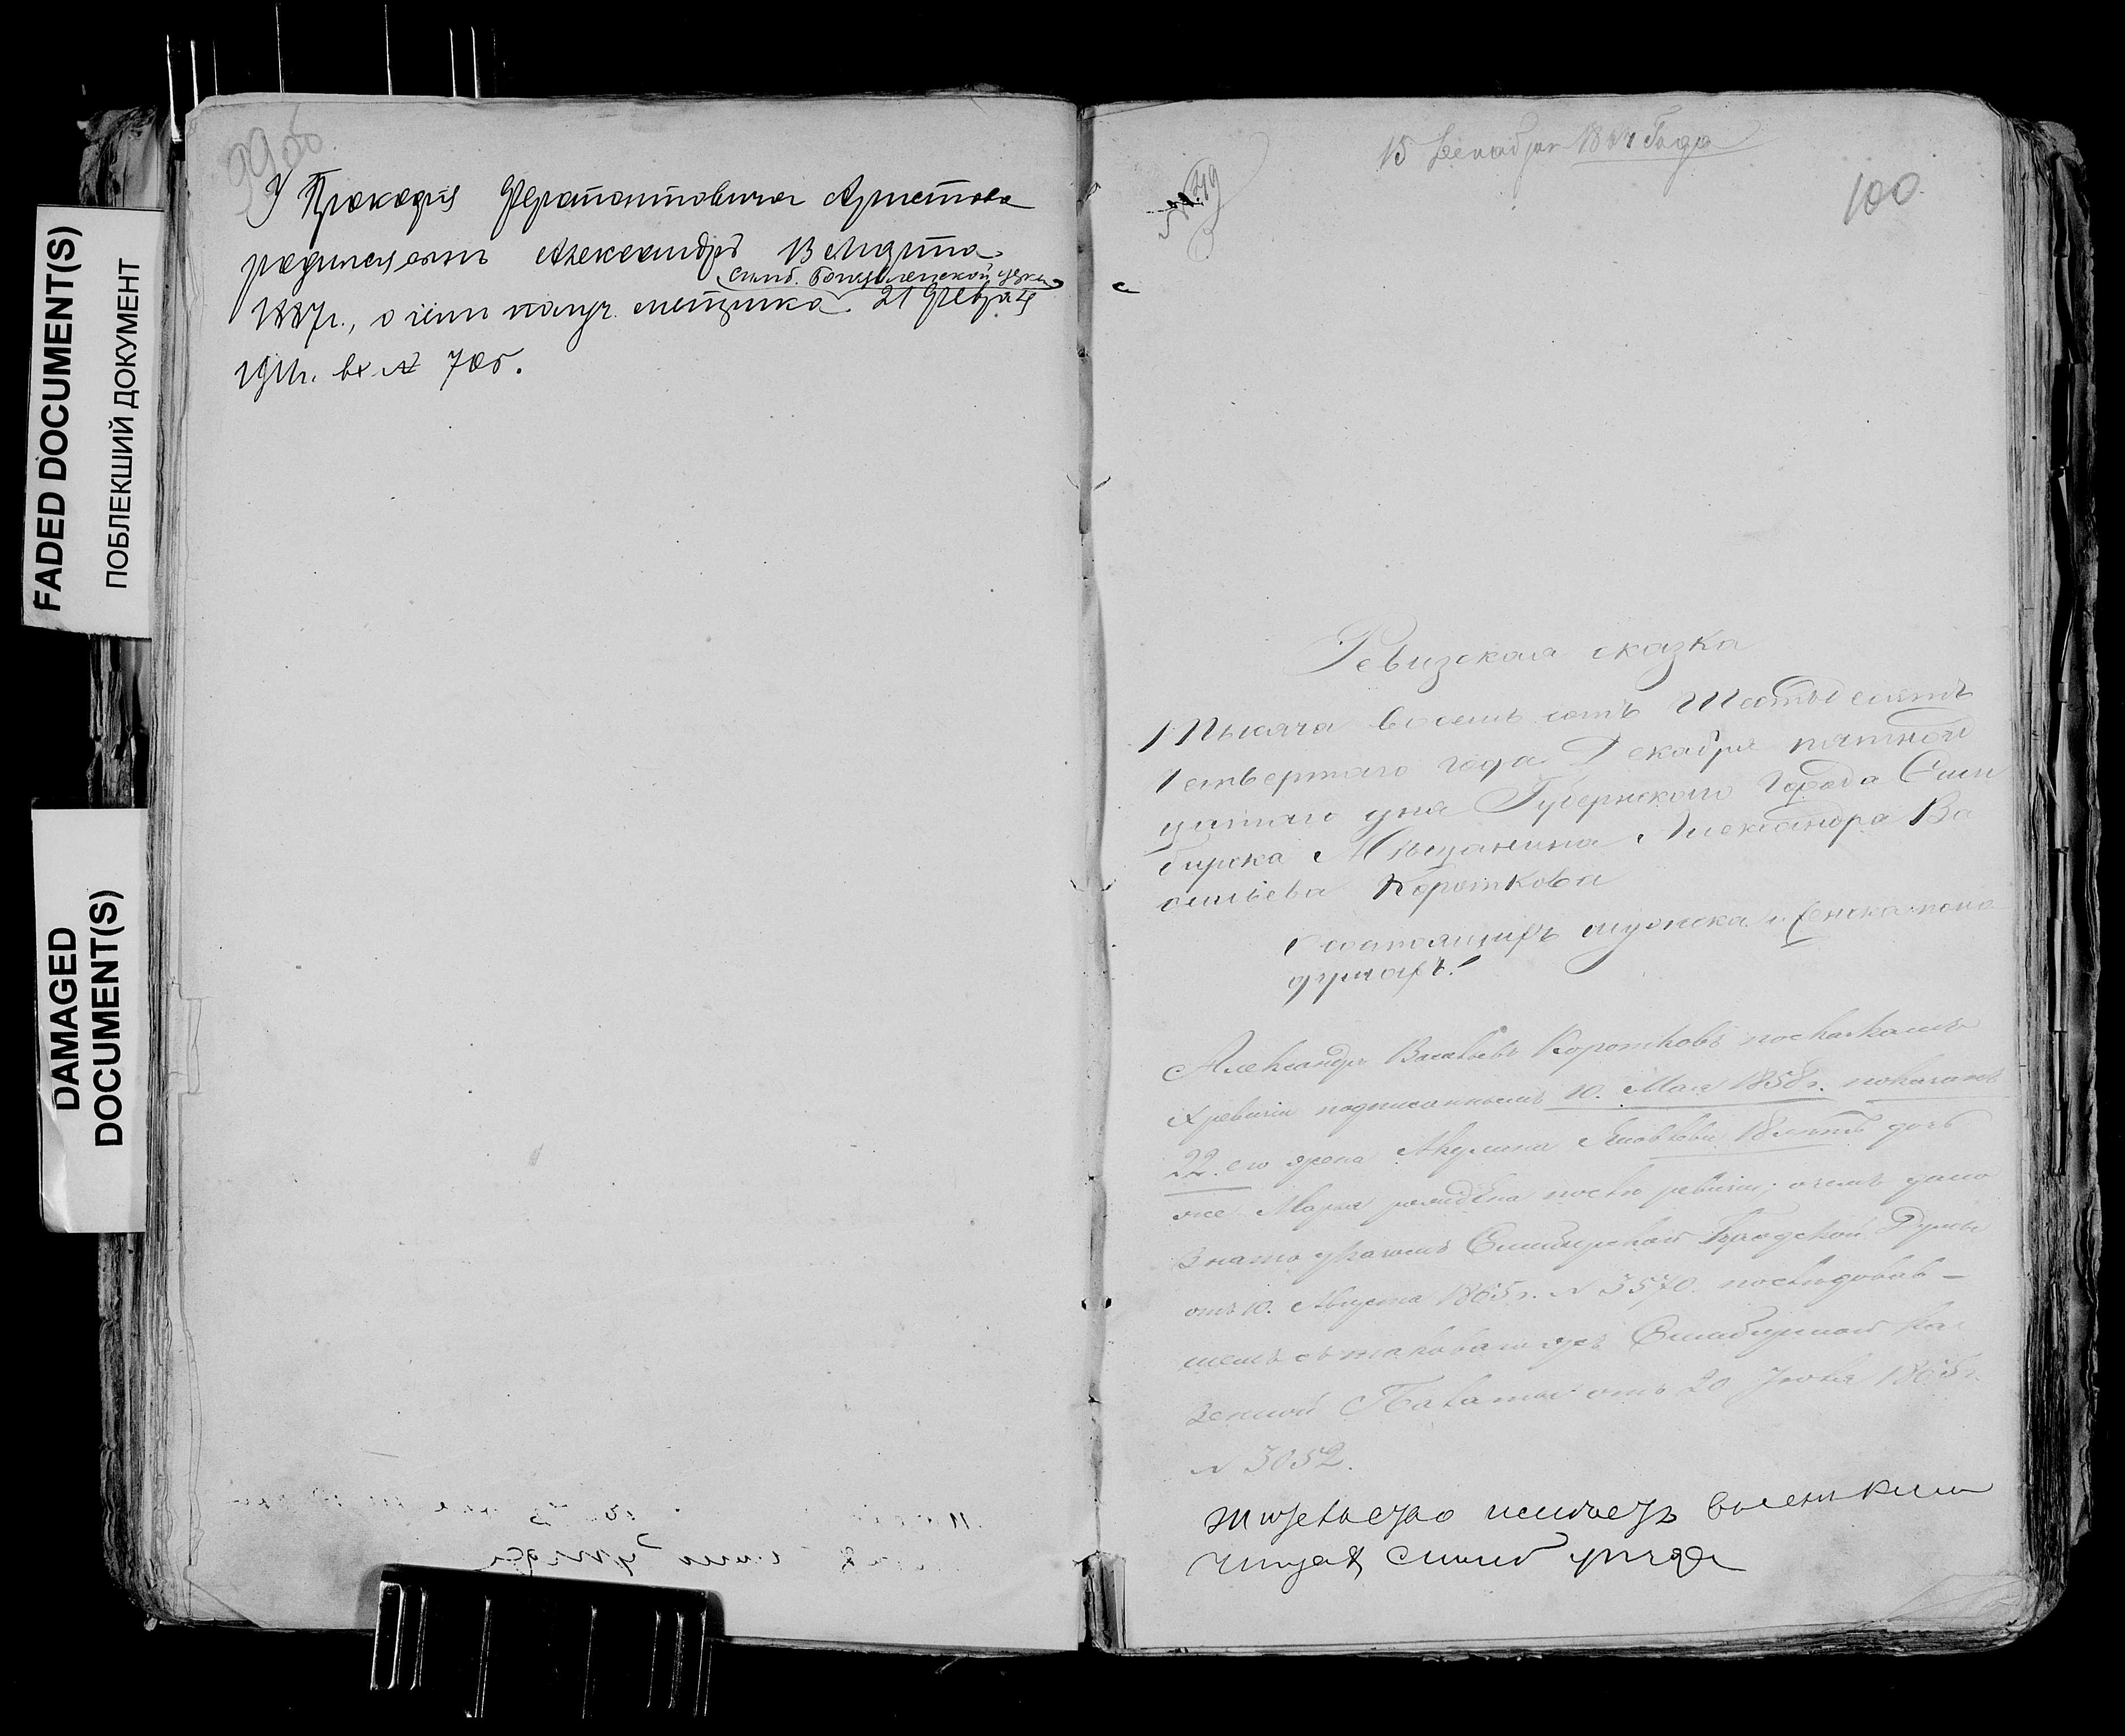 FADED DOCUMENT(S)
ПОБЛЕКШИЙ ДОКУМЕНТ
DAMAGED
DOCUMENT(S)
99об
У Прокофія Ферапонтовича Аристова
родился сынъ Александръ 13 Марта
Симб. Богоявленской церкви
1887г., о чемъ получ. метрика 21 Февраля
1911г. вх. № 705.
15 Декабря 1864 Года
100
Ревизская сказка
Тысяча восемь сотъ Шестьдесятъ
Четвертаго года Декабря пятнад
цатаго дня Губернскаго города Сим
бирска Мѣщанина Александра Ва
сильева Короткова
Состоящихъ мужска и женска пола
душахъ.
Александръ Васильевъ Коротковъ по сказкамъ
X ревизіи подписаннымъ 10. Мая 1858 г. показанъ
22. его жена Акулина Яковлева 18 лѣтъ дочь
же Марья рождена послѣ ревизіи; о чемъ дано
знать указомъ Симбирской Градской Думы
отъ 10. Августа 1865 г. № 3570. послѣдовав-
шемъ съ таковаго же Симбирской Ка
зенной Палаты отъ 20 Іюля 1865 г.
№ 3052.